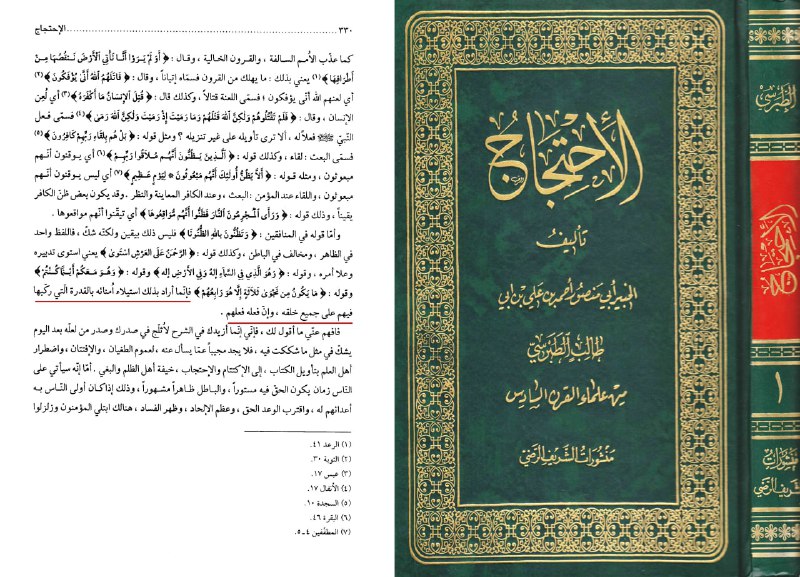 ٣٣٠ ............ الإحتجاج
كما عذّب الأُمم السالفة ، والقرون الخالية ، وقال : ﴿ أَوَ لَمْ يَرَوْا أَنَّا نَأتي ٱلْأَرْضَ نَنقُصُهَا مِنْ
أَطرَافِهَا ﴾(١) يعني بذلك : ما يهلك من القرون فسمّاه إتياناً ، وقال : ﴿ قَاتَلَهُمُ ٱللهُ أَنَّى يُؤْفَكُونَ ﴾(٢)
أي لعنهم الله أنّى يؤفكون ؛ فسمّى اللعنة قتالاً ، وكذلك قال : ﴿ قُتِلَ ٱلْإِنسَانُ مَا أَكْفَرَهُ ﴾(٣) أي لُعِن
الإنسان ، وقال : ﴿ فَلَمْ تَقْتُلُوهُمْ وَلٰكِنَّ ٱللهَ قَتَلَهُمْ وَمَا رَمَيْتَ إِذْ رَمَيْتَ وَلٰكِنَّ ٱللهَ رَمَى ﴾(٤) فسمّى فعل
النّبيّ ﷺ فعلاً له ، ألا ترى تأويله على غير تنزيله ؟ ومثل قوله : ﴿ بَلْ هُم بِلِقَاءِ رَبِّهِمْ كَافِرُونَ ﴾(٥)
فسمّى البعث : لقاء ، وكذلك قوله : ﴿ ٱلَّذِينَ يَظُنُّونَ أَنَّهُم مُلَاقُوا رَبِّهِمْ ﴾(٦) أي يوقنون أنّهم
مبعوثون ، ومثله قوله : ﴿ أَلَا يَظُنُّ أُولٰئِكَ أَنَّهُم مَبْعُوثُونَ ۞ لِيَوْمٍ عَظِيمٍ ﴾(٧) أي ليس يوقنون أنّهم
مبعوثون ، واللقاء عند المؤمن : البعث ، وعند الكافر المعاينة والنظر . وقد يكون بعض ظنّ الكافر
يقيناً ، وذلك قوله : ﴿ وَرَأَى ٱلْمُجْرِمُونَ ٱلنَّارَ فَظَنُّوا أَنَّهُم مُوَاقِعُوهَا ﴾ أي تيقّنوا أنّهم مواقعوها .
وأمّا قوله في المنافقين : ﴿ وَتَظُنُّونَ بِاللهِ الظُّنُونَا ﴾ فليس ذلك بيقين ولكنّه شكّ ، فاللفظ واحد
في الظاهر ، ومخالف في الباطن ، وكذلك قوله : ﴿ الرَّحْمٰنُ عَلَى العَرْشِ اسْتَوىٰ ﴾ يعني استوى تدبيره
وعلا أمره ، وقوله : ﴿ وَهُوَ الَّذِي فِي السَّمَآءِ إِلٰهٌ وَفِي الْأَرْضِ إِلٰه ﴾ وقوله : ﴿ وَهُوَ مَعَكُمْ أَيْنَمَا كُنْتُمْ ﴾
وقوله : ﴿ مَا يَكُونُ مِن نَجْوَىٰ ثَلَاثَةٍ إِلَّا هُوَ رَابِعُهُمْ ﴾ فإنّما أراد بذلك استيلاء أمنائه بالقدرة الّتي ركّبها
فيهم على جميع خلقه ، وإنّ فعله فعلهم .
فافهم عنّي ما أقول لك ، فإنّي إنّما أزيدك في الشرح لأُثلج في صدرك وصدر من لعلّه بعد اليوم
يشكّ في مثل ما شككت فيه ، فلا يجد مجيباً عمّا يسأل عنه ، لعموم الطغيان ، والإفتتان ، واضطرار
أهل العلم بتأويل الكتاب ، إلى الإكتتام والإحتجاب ، خيفة أهل الظلم والبغي . أمّا إنّه سيأتي على
النّاس زمان يكون الحقّ فيه مستوراً ، والباطل ظاهراً مشهوراً ، وذلك إذا كان أولى النّاس به
أعدائهم له ، واقترب الوعد الحق ، وعظم الإلحاد ، وظهر الفساد ، هنالك ابتلي المؤمنون وزلزلوا
(١) الرعد ٤١.
(٢) التوبة ٣٠.
(٣) عبس ١٧.
(٤) الأنفال ١٧.
(٥) السجدة ١٠.
(٦) البقرة ٤٦.
(٧) المطفّفين ٤ ـ ٥.
الأحتجاج
تأليف
أبي منصور أحمد بن علي بن أبي
طالب الطبرسي
من علماء القرن السادس
منشورات الشريف الرضي
الطبرسي
الأحتجاج
١
منشورات
الشريف الرضي